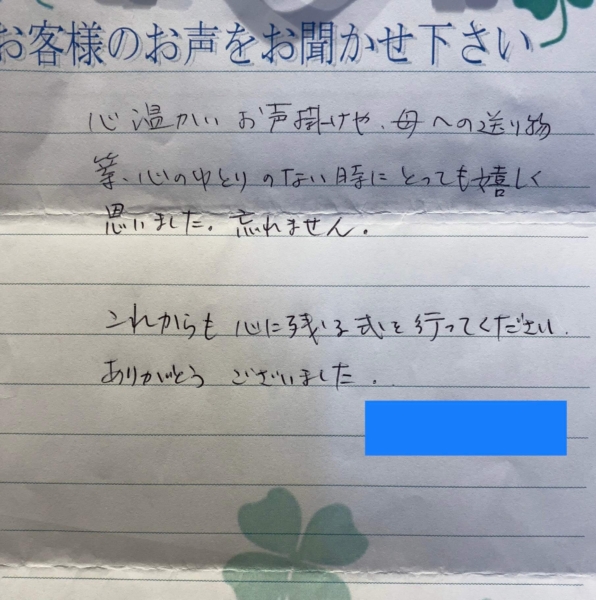 お客様のお声をお聞かせ下さい
心温かいお声掛けや、母への送り物
等、心のゆとりのない時にとっても嬉しく
思いました。忘れません。
これからも心に残る式を行ってください.
ありがとうございました.